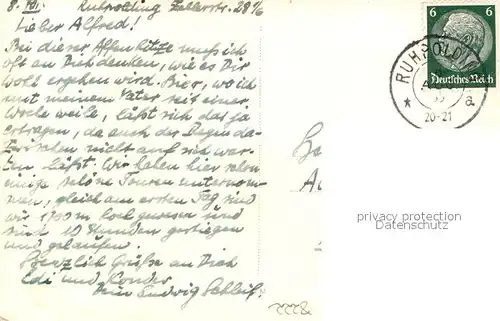 8. VII. Ruhpolding Zellerstr. 28 1/6
Lieber Alfred!
Bei dieser Affenhitze muß ich
oft an Dich denken, wie es Dir
wohl ergehen wird. Hier, wo ich
mit meinem Vater seit einer
Woche weile, läßt sich das ja
ertragen, da auch der Regen da-
zwischen nicht auf sich war-
ten läßt. Wir haben hier schon
einige schöne Touren unternom-
men, gleich am ersten Tag sind
wir 1700 m hoch gewesen und
sind 10 Stunden gestiegen
und gelaufen.
Herzlich Grüße an Dich
Edi und
Dein Ludwig Schleif!
6 6
Deutsches Reich
RUHPOLDING
a
20-21
privacy protection
Datenschutz
8222